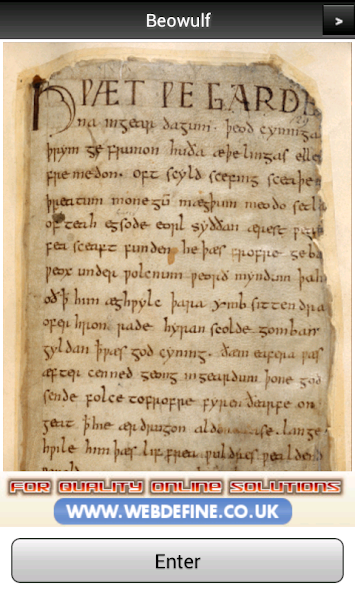 Beowulf
>
HǷÆT ǷE GARDE
na ingear dagum. þeod cyninga
þrym ge frunon huða æþelingas elle
fremedon. oft scyld scefing sceaþe
þreatum monegū mægþum meodo setl
of teah egsode eorl syððan ærest ƿea
fea sceaft funden he þæs frofre geba
ƿeox under ƿolcnum ƿeorð myndum þah
oð ꝥ him æghƿylc þara ymb sittendra
ofer hron rade hyran scolde gomban
gyldan þæt ƿæs god cyning. ðæm eafera ƿæs
æfter cenned geong ingeardum þone god
sende folce tofrofre fyren ðearfe on
geat ꝥ hie ær drugon aldor ase. lange
hƿile him þæs lif frea ƿuldres ƿealdend
FOR QUALITY ONLINE SOLUTIONS
WWW.WEBDEFINE.CO.UK
Enter